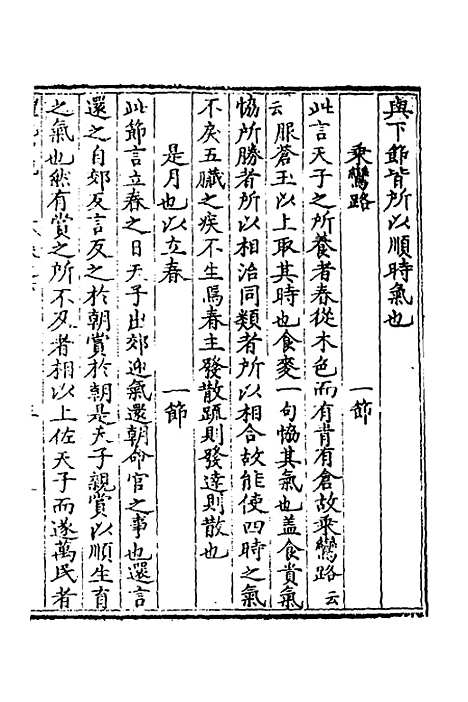 與下節皆所以順時氣也
乘鸞路 一節
此言天子之所養者春從木色而有青有倉故乘鸞路云
云服蒼玉以上取其時也食麥一句恊其氣也盖食貴氣
恊所勝者所以相治同類者所以相合故能使四時之氣
不戾五臟之疾不生焉春主發散疏則發達則散也
是月也以立春 一節
此節言立春之日天子出郊迎氣還朝命官之事也還言
還之自郊反言反之於朝賞於朝是天子親賞以順生育
之氣也然有賞之所不及者相以上佐天子而遂萬民者